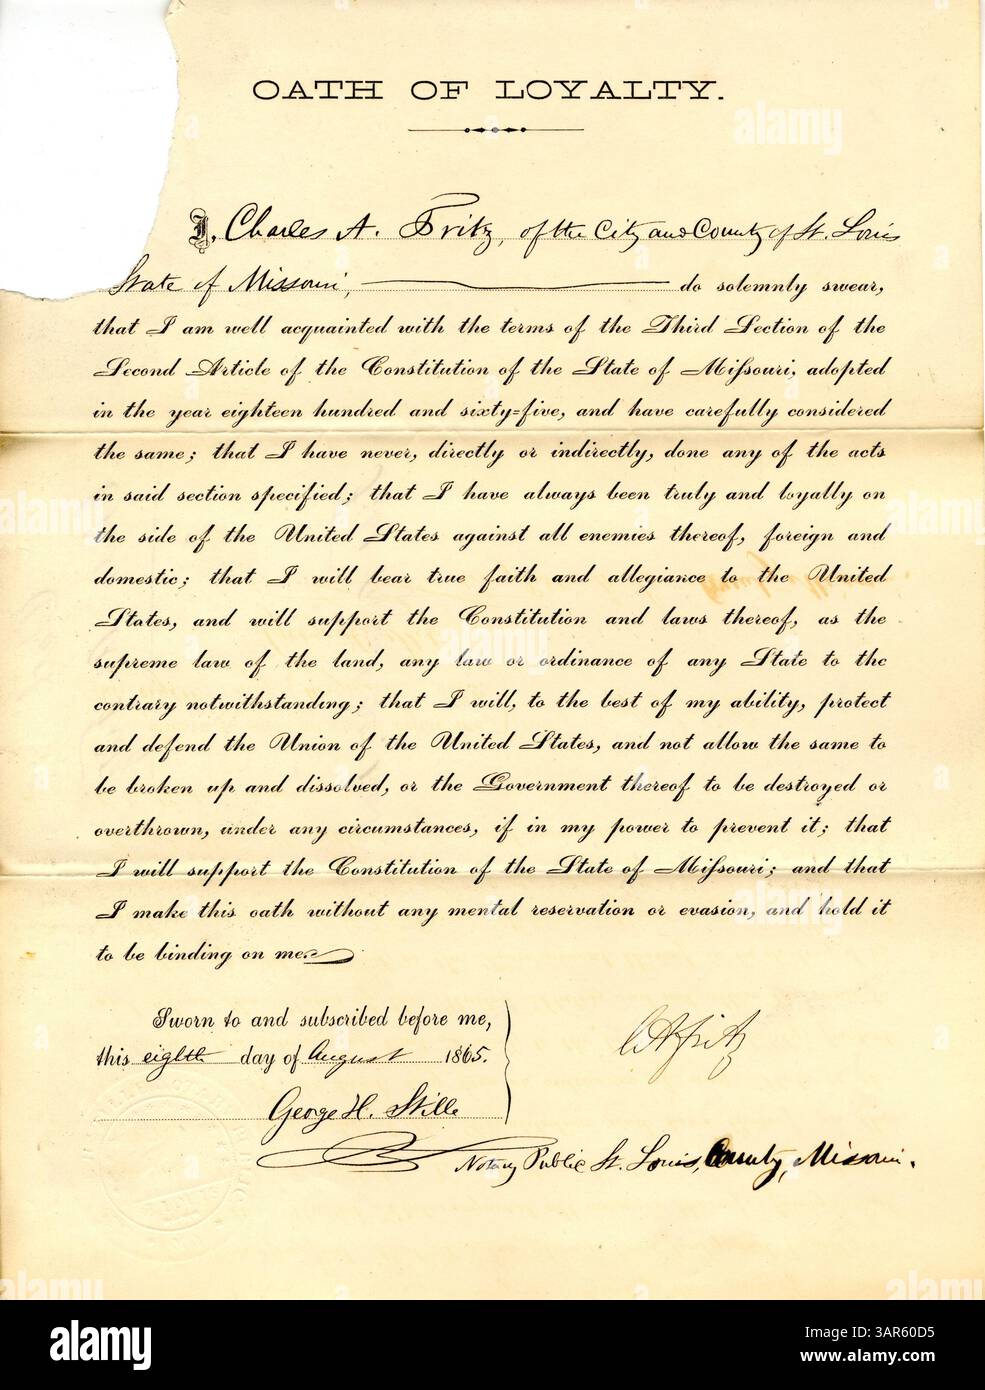 OATH OF LOYALTY.
I, Charles A. Fritz, of the City and County of St. Louis
State of Missouri, do solemnly swear,
that I am well acquainted with the terms of the Third Section of the
Second Article of the Constitution of the State of Mißouri, adopted
in the year eighteen hundred and sixty=five, and have carefully considered
the same; that I have never, directly or indirectly, done any of the acts
in said section specified; that I have always been truly and loyally on
the side of the United States against all enemies thereof, foreign and
domestic; that I will bear true faith and allegiance to the United
States, and will support the Constitution and laws thereof, as the
supreme law of the land, any law or ordinance of any State to the
contrary notwithstanding; that I will, to the best of my ability, protect
and defend the Union of the United States, and not allow the same to
be broken up and dissolved, or the Government thereof to be destroyed or
overthrown, under any circumstances, if in my power to prevent it; that
I will support the Constitution of the State of Mißouri; and that
I make this oath without any mental reservation or evasion, and hold it
to be binding on me.
Sworn to and subscribed before me,
this eighth day of August 1865.
George H. Stille
C A Fritz
Notary Public St. Louis, County, Missouri.
alamy
Image ID: 3AR60D5
www.alamy.com